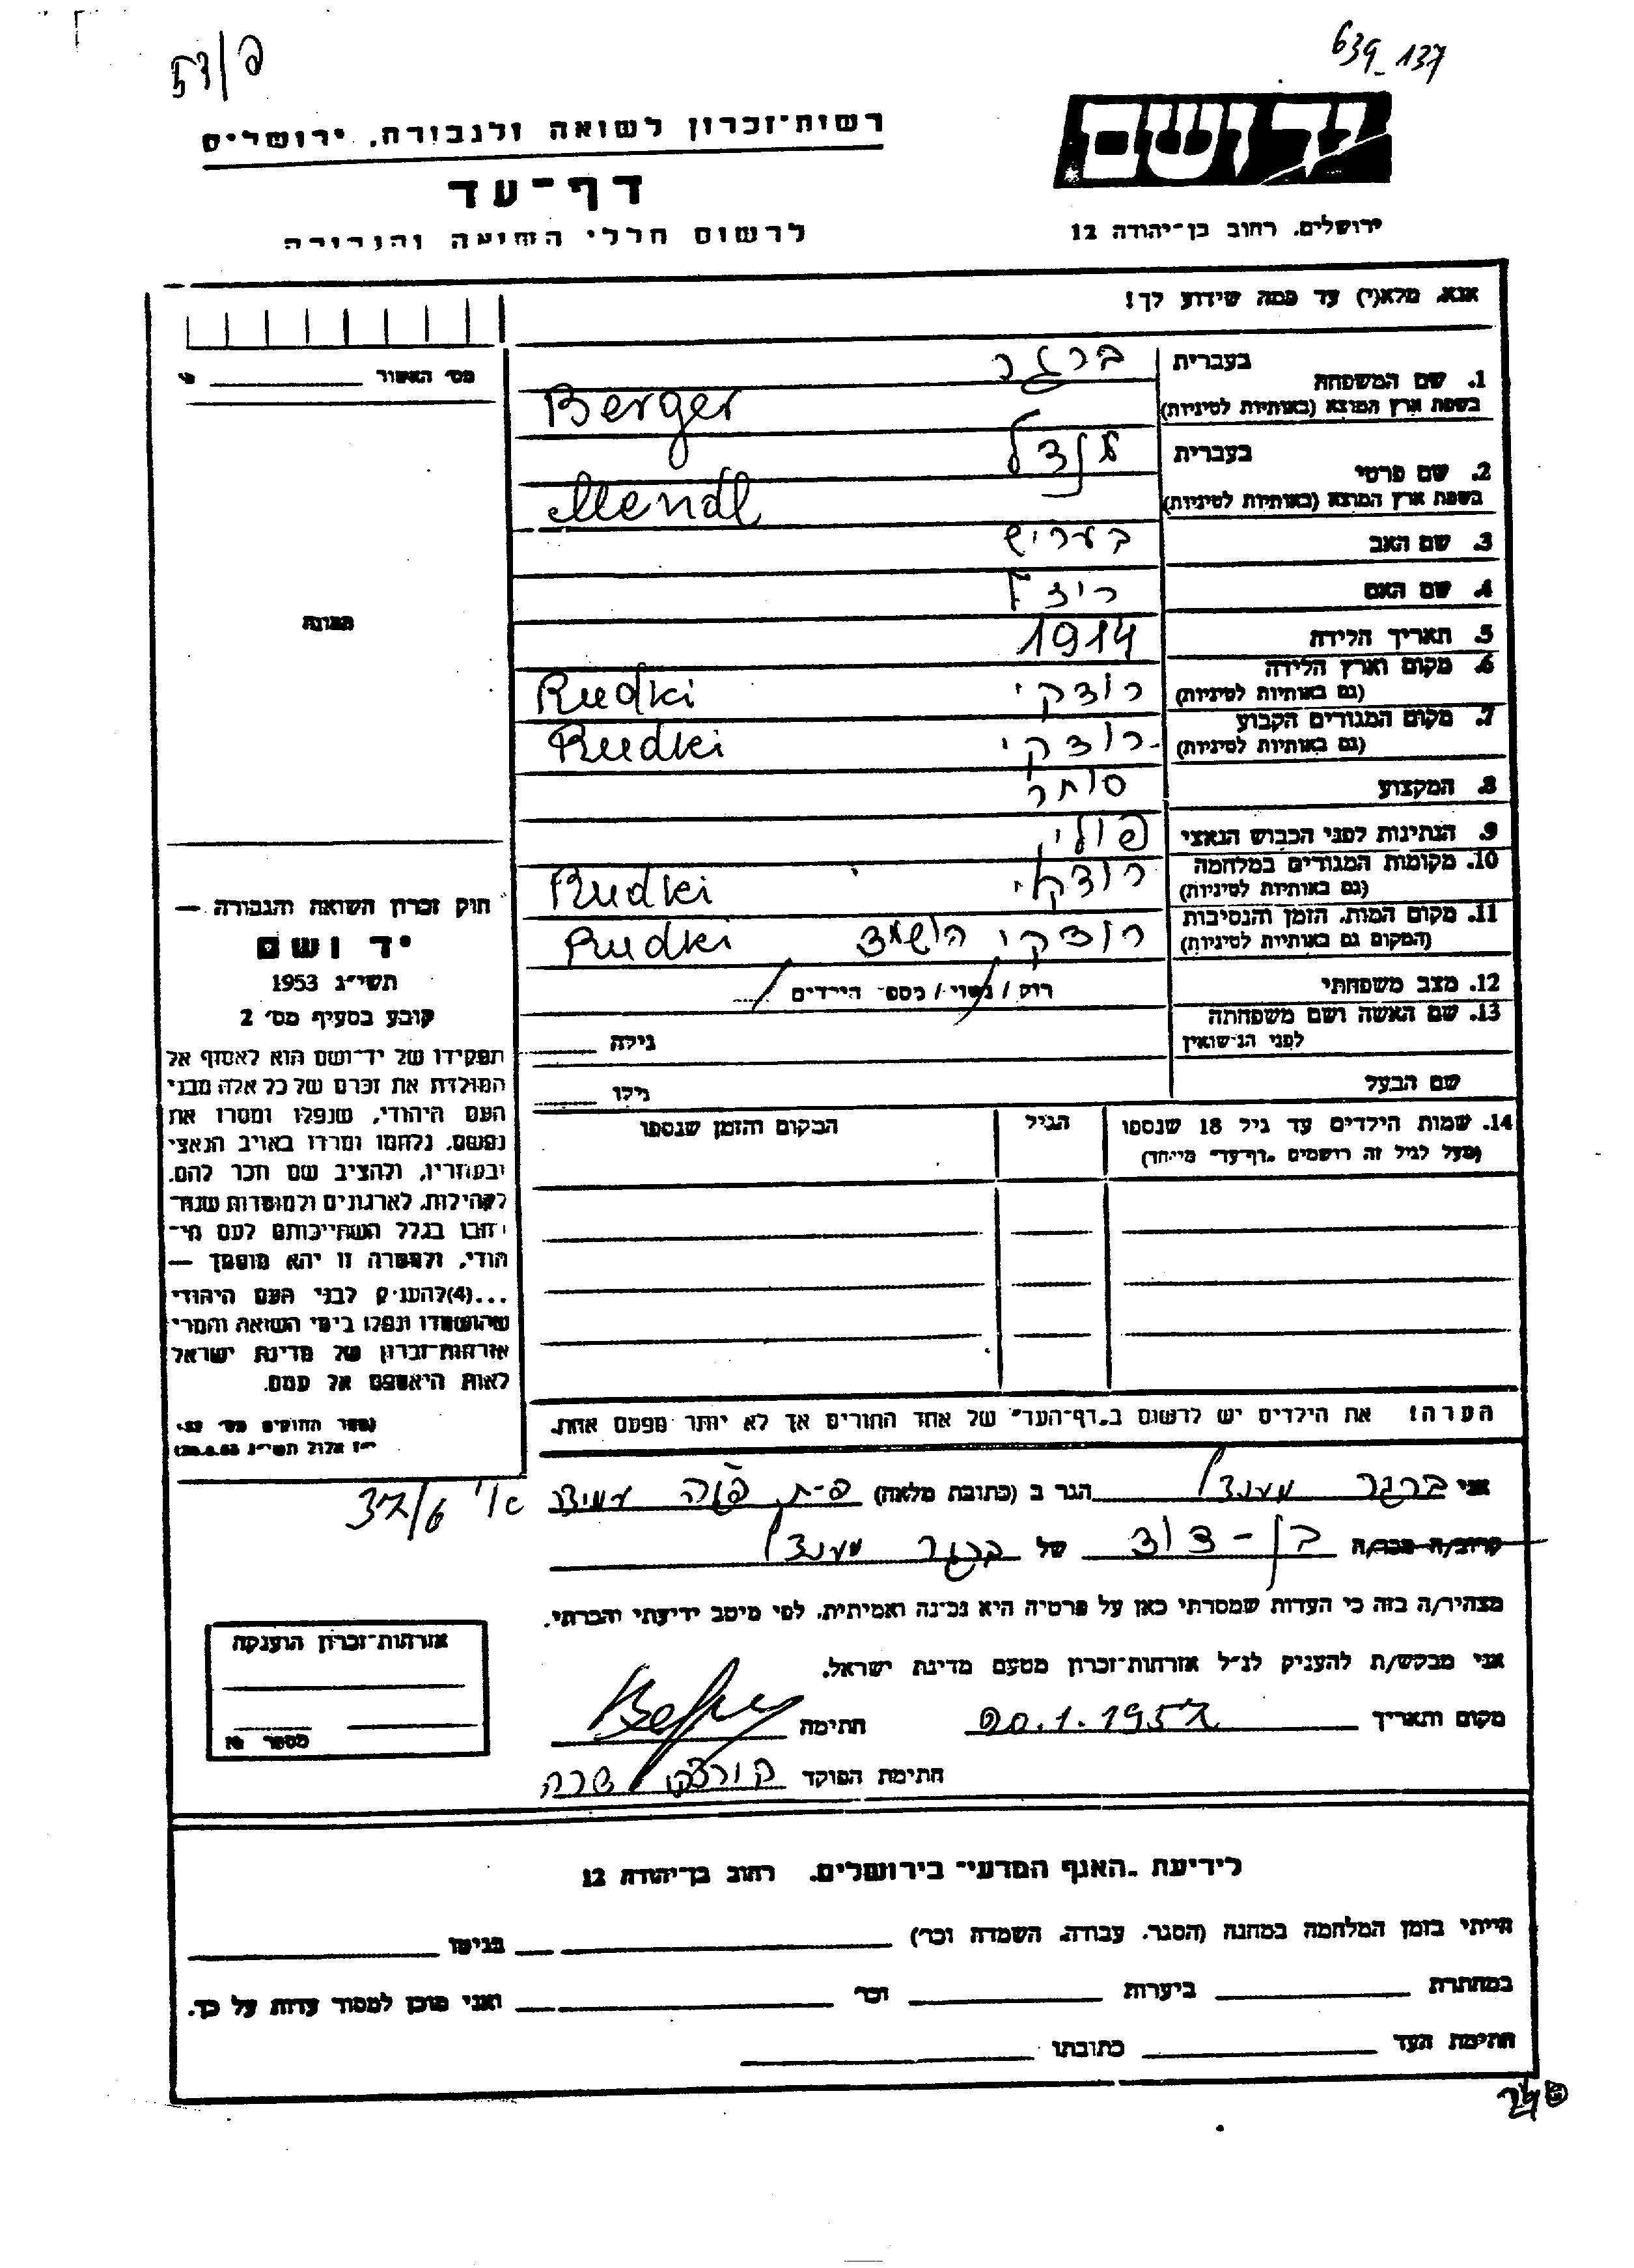 639-137
53/פ
יד ושם
רשות־זכרון לשואה ולגבורה, ירושלים
דף־עד
לרשום חללי השואה והגבורה
ירושלים, רחוב בן־יהודה 12
אנא, מלא(י) עד כמה שידוע לך!
בעברית ברגר
1. שם המשפחה
בשפת ארץ המוצא (באותיות לטיניות) Berger
בעברית מנדל
2. שם פרטי
בשפת ארץ המוצא (באותיות לטיניות) Mendl
3. שם האב בעריש
4. שם האם
5. תאריך הלידה 1914
6. מקום וארץ הלידה
(גם באותיות לטיניות) רודקי Rudki
7. מקום המגורים הקבוע
(גם באותיות לטיניות) רודקי Rudki
8. המקצוע סוחר
9. הנתינות לפני הכבוש הנאצי פולי
10. מקומות המגורים במלחמה
(גם באותיות לטיניות) רודקי Rudki
11. מקום המות, הזמן והנסיבות
(המקום גם באותיות לטיניות) רודקי הושמד Rudki
12. מצב משפחתי רוק / נשוי / מספר הילדים
13. שם האשה ושם משפחתה
לפני הנישואין גילה
שם הבעל גילו
14. שמות הילדים עד גיל 18 שנספו הגיל המקום והזמן שנספו
(מעל לגיל זה רושמים "דף־עד" מיוחד)
הערה! את הילדים יש לרשום ב"דף־העד" של אחד ההורים אך לא יותר מפעם אחת.
מס׳ האשור
תמונה
חוק זכרון השואה והגבורה —
יד ושם
תשי״ג 1953
קובע בסעיף מס׳ 2
תפקידו של יד־ושם הוא לאסוף אל
המולדת את זכרם של כל אלה מבני
העם היהודי, שנפלו ומסרו את
נפשם, נלחמו ומרדו באויב הנאצי
ובעוזריו, ולהציב שם וזכר להם,
לקהילות, לארגונים ולמוסדות שנח־
רבו בגלל השתייכותם לעם הי־
הודי, ולמטרה זו יהא מוסמך —
...(4)להעניק לבני העם היהודי
שהושמדו ונפלו בימי השואה והמרי
אזרחות־זכרון של מדינת ישראל
לאות היאספם אל עמם.
(ספר החוקים מס׳ 132
י״ז אלול תשי״ג 28.8.53)
אני ברגר מענדל הגר ב (כתובת מלאה) פ-ת
37/6
קרוב/ה מכר/ה בן-דוד של ברגר מענדל
מצהיר/ה בזה כי העדות שמסרתי כאן על פרטיה היא נכונה ואמיתית, לפי מיטב ידיעתי והכרתי.
אני מבקש/ת להעניק לנ״ל אזרחות־זכרון מטעם מדינת ישראל.
מקום ותאריך 20.1.1957 חתימה
חתימת הפוקד שרה
אזרחות־זכרון הוענקה
מספר
לידיעת "האגף המדעי" בירושלים, רחוב בן־יהודה 12
הייתי בזמן המלחמה במחנה (הסגר, עבודה, השמדה וכו׳) בגיטו
במחתרת ביערות וכו׳ ואני מוכן למסור עדות על כך.
חתימת העד כתובתו